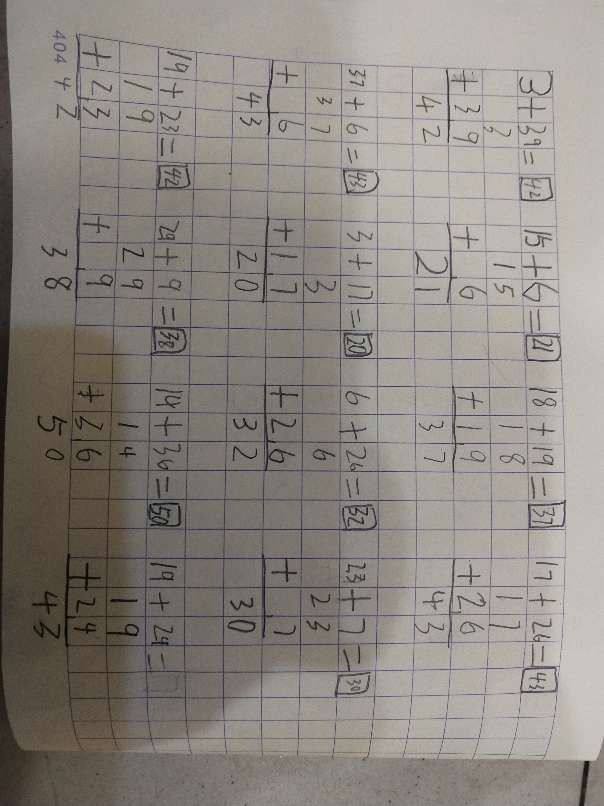 3+39=42 15+6=21 18+19=37 17+26=43
3 15 18 17
+39 +6 +19 +26
42 21 37 43
37+6=43 3+17=20 6+26=32 23+7=30
37 3 6 23
+6 +17 +26 +7
43 20 32 30
19+23=42 29+9=38 14+36=50 19+24=
19 29 14 19
+23 +9 +36 +24
42 38 50 43
404